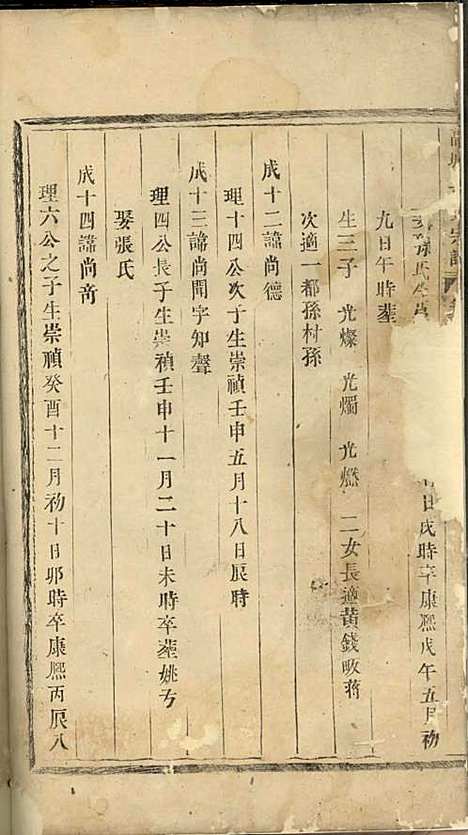 宗譜
日戌時卒康熙戊午五月初
九日午時葬
生三子 光燦 光燭 光燃 二女長適黄錢畈蔣
次適一都孫村孫
成十二諱尚德
理十四公次子生崇禎壬申五月十八日辰時
成十三諱尚聞字知聲
理四公長子生崇禎壬申十一月二十日未時卒葬姚方
娶張氏
成十四諱尚奇
理六公之子生崇禎癸酉十二月初十日卯時卒康熙丙辰八